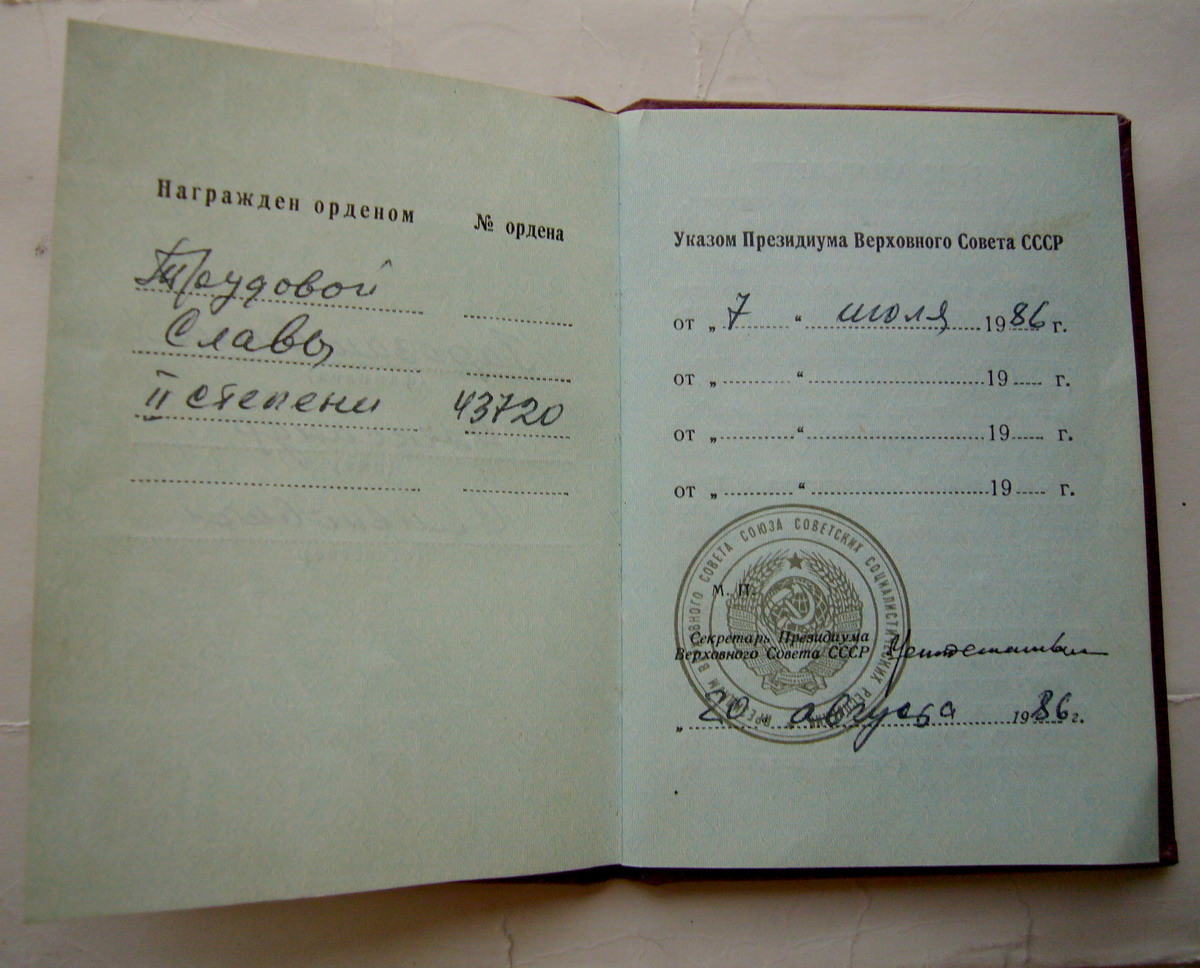 Награжден орденом № ордена
Трудовой
Славы
II степени 43720
Указом Президиума Верховного Совета СССР
от „ 7 “ июля 1986 г.
от „ “ 19 г.
от „ “ 19 г.
от „ “ 19 г.
ПРЕЗИДИУМ ВЕРХОВНОГО СОВЕТА СОЮЗА СОВЕТСКИХ СОЦИАЛИСТИЧЕСКИХ РЕСПУБЛИК
М. П.
Секретарь Президиума
Верховного Совета СССР
„ 20 “ августа 1986 г.